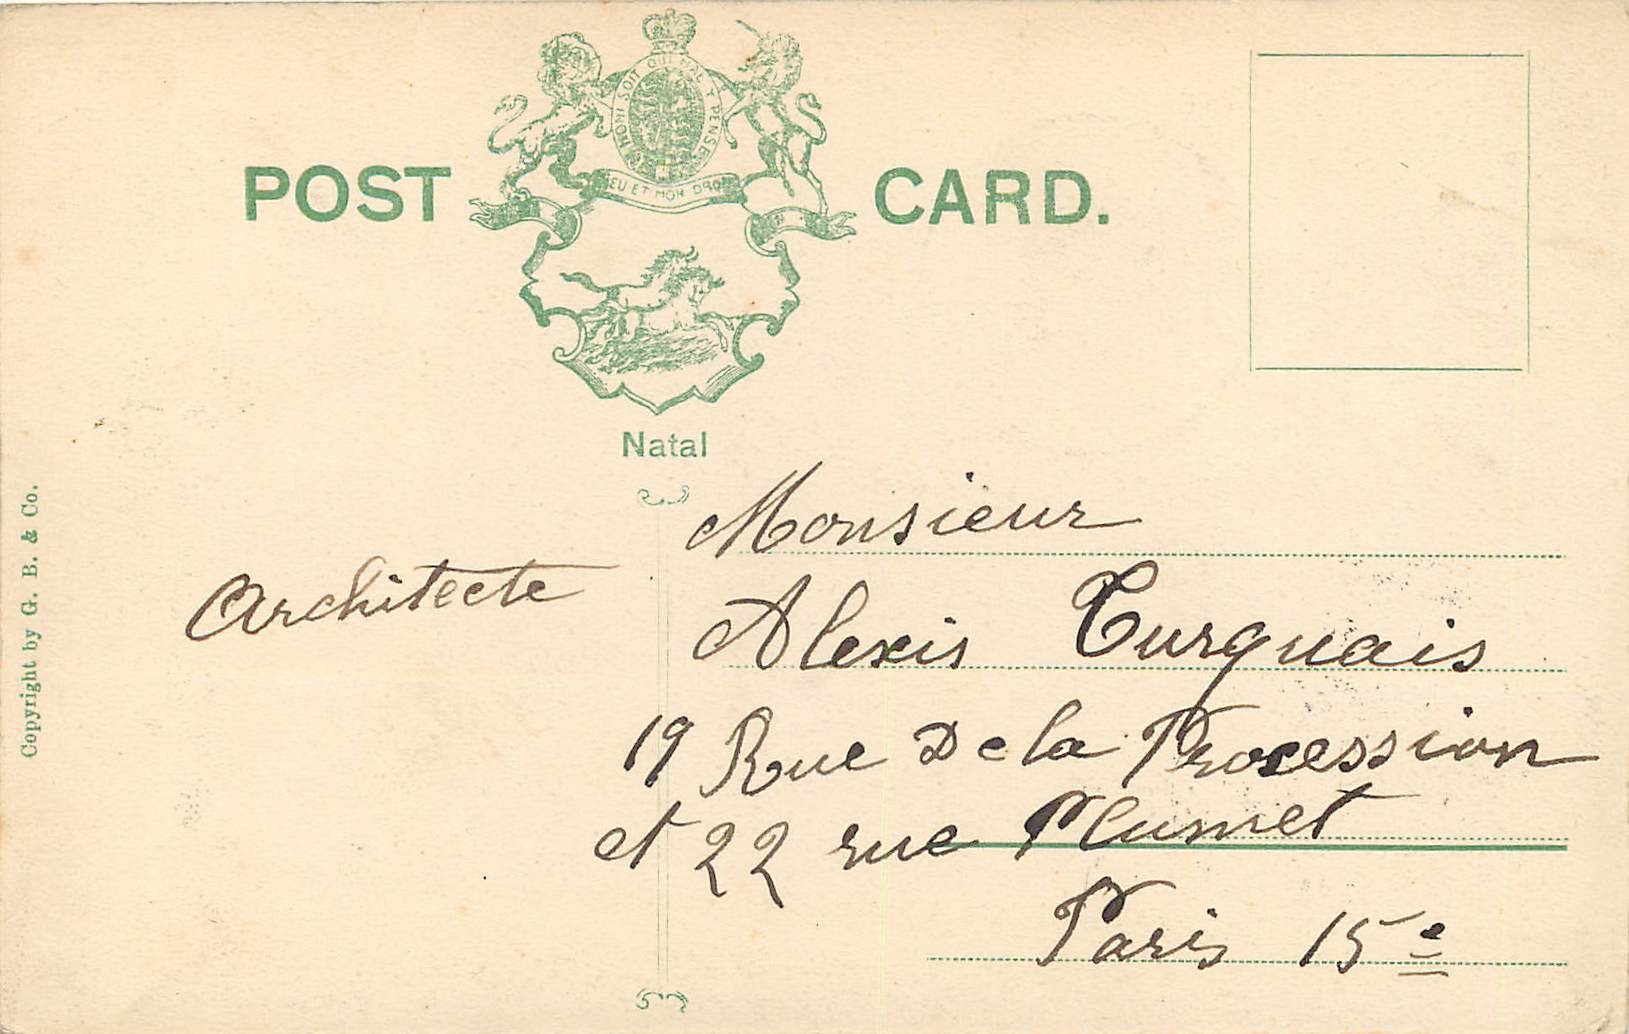 POST CARD.
HONI SOIT QUI MAL Y PENSE
DIEU ET MON DROIT
Natal
Copyright by G. B. & Co.
Architecte
Monsieur
Alexis Turquais
19 Rue De la Procession
et 22 rue Plumet
Paris 15e